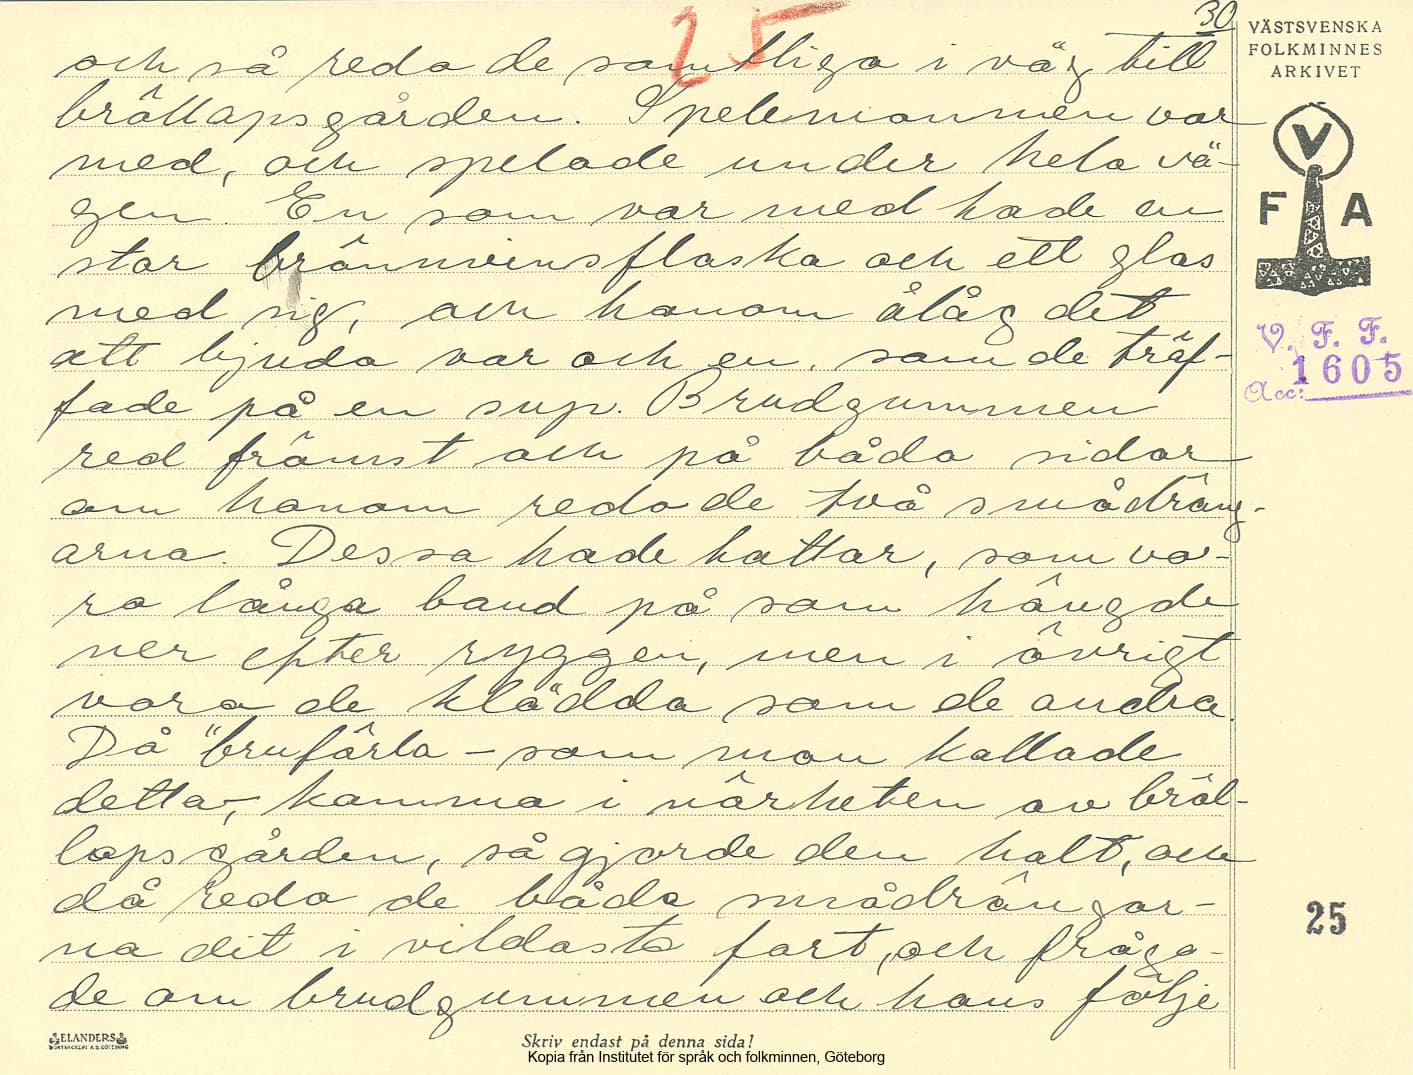 30
25
VÄSTSVENSKA
FOLKMINNES
ARKIVET
och så redo de samtliga i väg till
bröllapsgården. Spelemannen var
med, och spelade under hela vä-
gen. En som var med hade en
stor brännvinsflaska och ett glas
med sig, och honom ålåg det
att bjuda var och en, som de träf-
fade på en sup. Brudgummen
red främst och på båda sidor
om honom redo de två smådräng-
arna. Dessa hade hattar, som vo-
ro långa band på som hängde
ner efter ryggen, men i övrigt
voro de klädda som de andra.
Då "brufärla – som man kallade
detta-, komma i närheten av bröl-
lopsgården, så gjorde den halt, och
då redo de båda smådrängar-
na dit i vildasta fart, och fråga-
de om brudgummen och hans följe
V
F A
V. F. F.
1605
Acc:
25
ELANDERS
BOKTRYCKERI A.B. GÖTEBORG
Skriv endast på denna sida!
Kopia från Institutet för språk och folkminnen, Göteborg